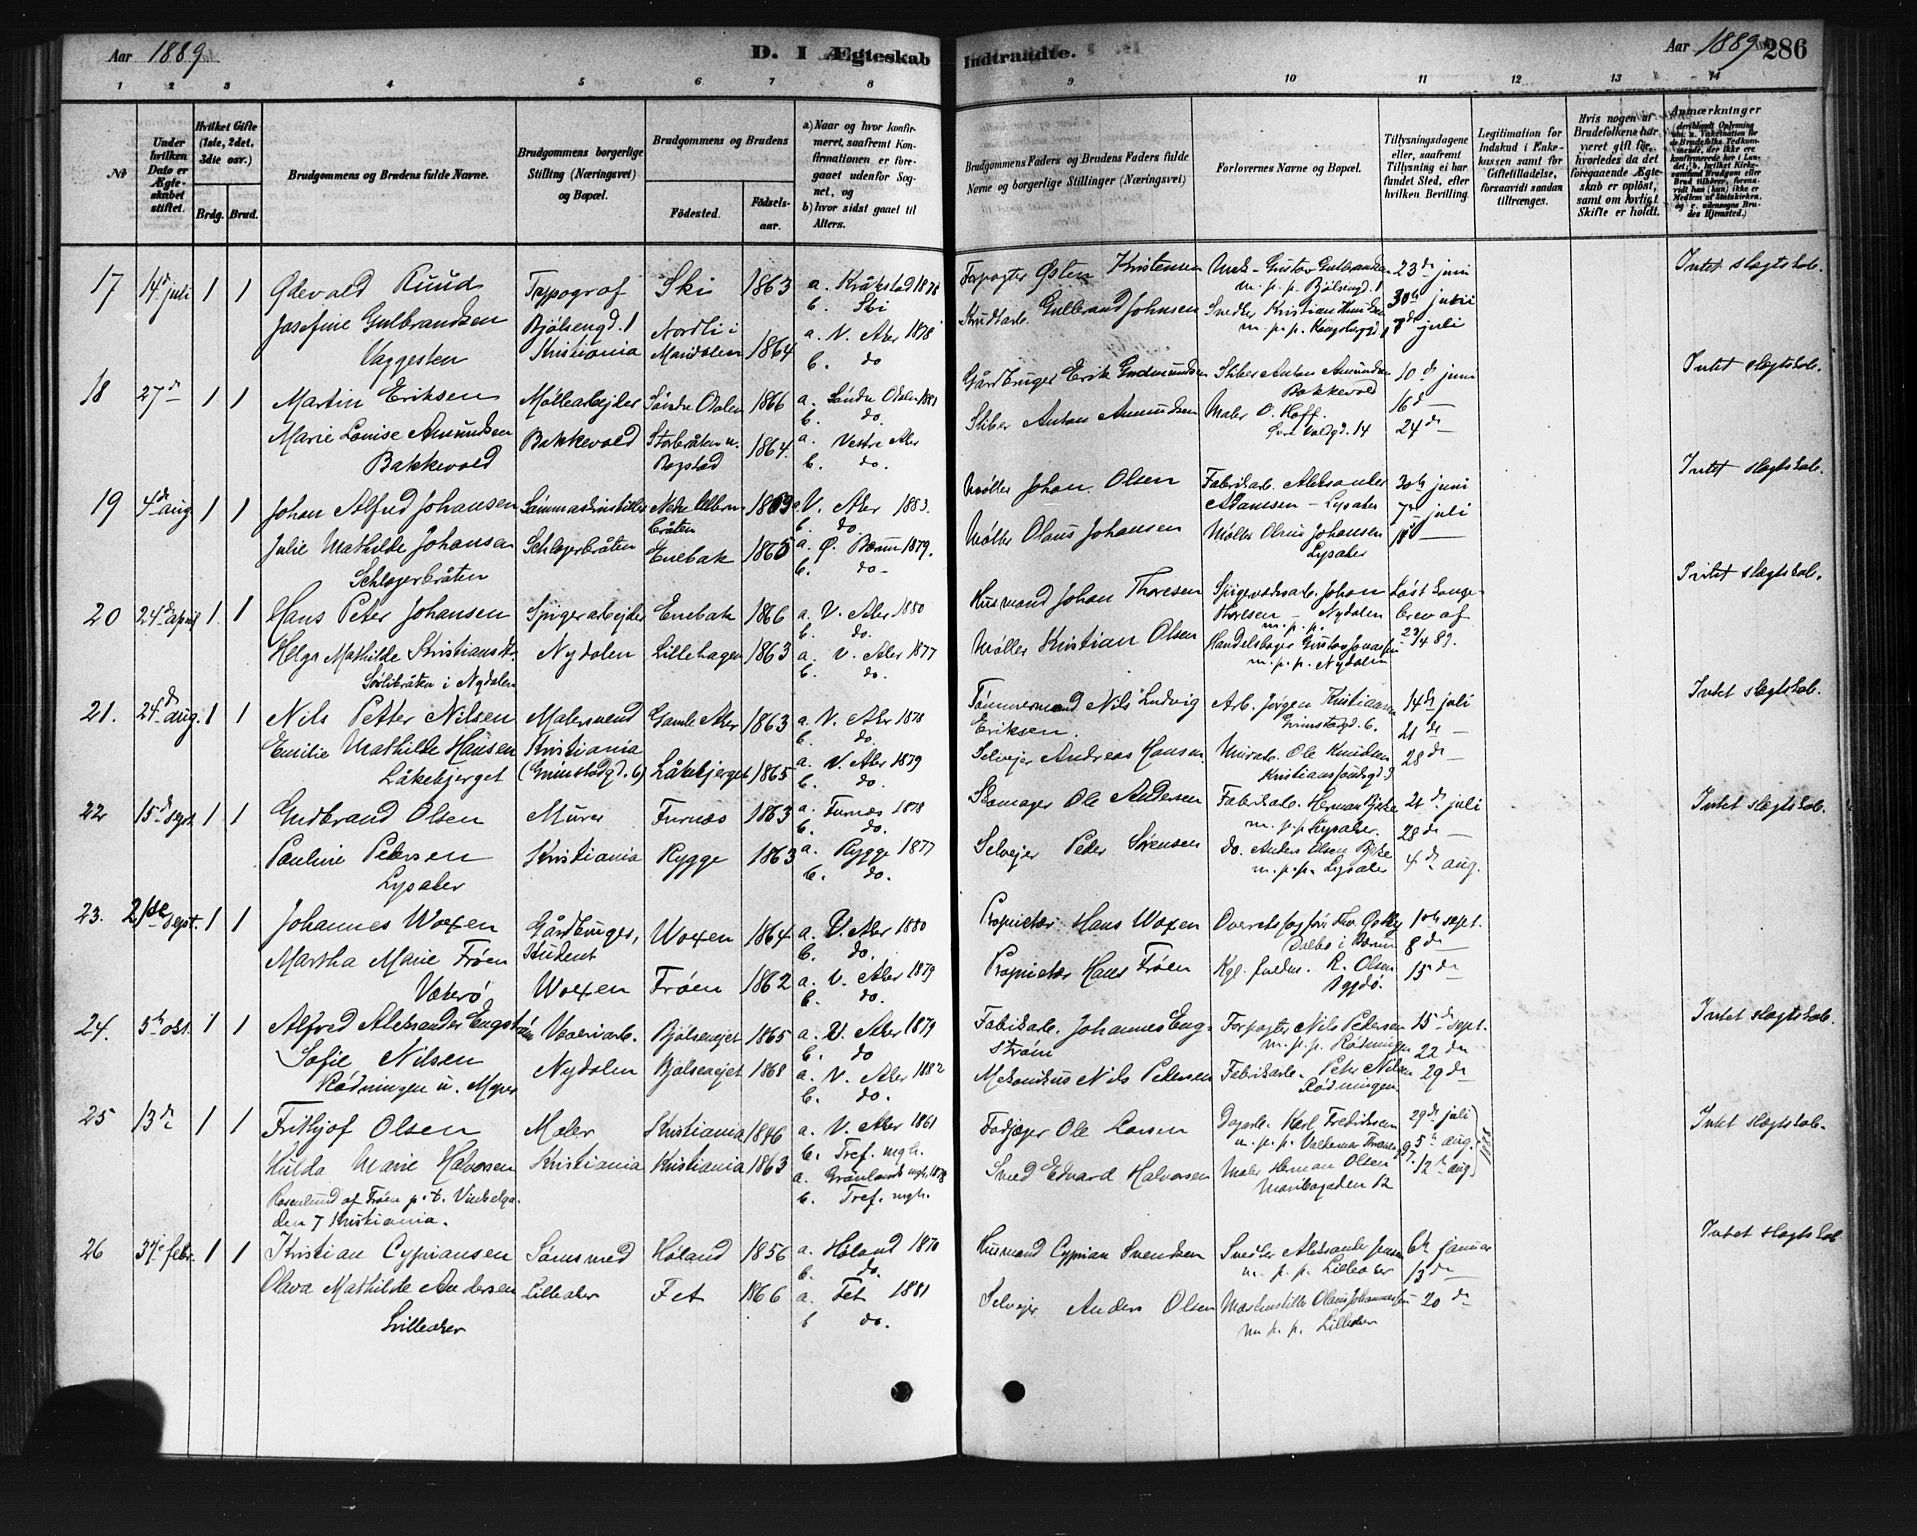 Aar 1889
D. I Ægteskab
Indtraadte.
Aar 1889
286
1 2 3 4 5 6 7 8 9 10 11 12 13 14
No
Under hvilken Dato er Ægteskabet stiftet.
Hvilket Gifte (1ste, 2det, 3die osv.)
Brdg. Brud.
Brudgommens og Brudens fulde Navne.
Brudgommens borgerlige Stilling (Næringsvei) og Bopæl.
Brudgommens og Brudens
Fødested.
Fødselsaar.
a) Naar og hvor konfirmeret, saafremt Konfirmationen er foregaaet udenfor Sognet, og
b) hvor sidst gaaet til Alters.
Brudgommens Faders og Brudens Faders fulde Navne og borgerlige Stillinger (Næringsvei)
Forlovernes Navne og Bopæl.
Tillysningsdagene eller, saafremt Tillysning ei har fundet Sted, efter hvilken Bevilling.
Legitimation for Indskud i Enkekassen samt for Giftetilladelse, forsaavidt saadan tiltrænges.
Hvis nogen af Brudefolkene har været gift før, hvorledes da det foregaaende Ægteskab er opløst, samt om lovligt Skifte er holdt.
Anmærkninger
17 14de juli 1 1 Odevald Ruud Typograf Ski 1863 a. Kråkstad 1878
b. Ski
Josefine Gulbrandsen Bjølsengd. 1 Nordli i
Vaggesten Kristiania Maridalen 1864 a. V. Aker 1878
b. do
Forpagter Østen Kristensen
Gulbrand Johnsen
Gustav Gulbrandsen
m. p. p. Bjølsengd. 1
Snedker Kristian Knudsen
m. p. p.
23de juni
30te juni
7de juli
Intet slægtskab.
18 27de 1 1 Martin Eriksen Møllearbejder Søndre Odalen 1866 a. Søndre Odalen 1881
b. do.
Marie Lovise Amundsen Bakkevold Storbråten u. 1864. a. Vestre Aker
Bakkevold Bogstad b. do.
Gårdbruger Erik Gudmundsen
Stiber Anton Amundsen
Stiber Anton Amundsen
Bakkevold
Maler O. Hoff.
Øvre Voldgd. 14
10de juni
16de
24de
Intet slægtskab.
19 4de aug 1 1 Johan Alfred Johansen Nedre Ullern 1863 a. V. Aker 1883.
bråten b. do
Julie Mathilde Johansen Schlagerbråten Enebak 1865 a. Ø. Bærum 1879.
Schlagerbråten b. do-
Møller Johan Olsen
Møller Olaus Johansen
Fabrikarb. Aleksander
Adamsen - Lysaker
Møller Olaus Johansen
Lysaker
30te juni
7de juli
14de
Intet slægtskab.
20 24de april 1. 1 Hans Peter Johansen Spigerarbejder Enebak 1866 a. V. Aker 1880
b. do.
Helga Mathilde Kristiansdtr. Nydalen Lillehagen 1863 a. V. Aker 1877
Sørlibråten i Nydalen b. do.
Husmand Johan Thoresen
Møller Kristian Olsen
Johan
Thoresen - Nydalen
m. p. p.
Gustav
m. p. p. Nydalen
Løst konge-
brev af
23/4 89.
Intet slægtskab.
21. 24de aug. 1 1 Nils Petter Nilsen Malersvend Gamle Aker 1863 a. V. Aker 1878
b. do.
Emilie Mathilde Hansen Kristiania
Låkebjerget (Grimstadgd. 6) Låkebjerget 1865 a. V. Aker 1879
b. do.
Tømmermand Nils Ludvig
Eriksen.
Selvejer Andreas Hansen
Arb. Jørgen Kristiansen
Grimstadgd. 6.
Murarb. Ole Knudsen
Kristiansundsgd. 3
14de juli
21de -
28de -
Intet slægtskab.
22 15de sept. 1 1 Gudbrand Olsen Murer Furnæs 1863 a. Furnæs 1878
b. do.
Pauline Petersen Kristiania Rygge 1863 a. Rygge 1877
Lysaker b. do.
Skomager Ole Andersen
Selvejer Peder Sørensen
Fabrikarb. Herman Bjerke
m. p. p. Lysaker.
do. Anders Olsen Bjerke
m. p. p. Lysaker
21de juli
28de -
4de aug.
Intet slægtskab.
23. 21de sept. 1 1 Johannes Woxen Gårdbruger, Woxen 1864 a. V. Aker 1880
Student b. do.
Martha Marie Frøen Woxen Frøen 1862 a. V. Aker 1879
Vækerø b. do.
Proprietær Hans Woxen
Proprietær Hans Frøen
Overretssagfører
i Bærum
Kgl. fuldm. R. Olsen
Bygdø.
1ste sept.
8de
15de
24. 5te okt. 1 1 Alfred Aleksander Engstrøm Væveriarb. Bjølsenejet 1865 a. V. Aker 1879
b. do
Sofie Nilsen Nydalen Bjølsenejet 1868 a. V. Aker 1882
Rødningen u. Myrer b. do.
Fabrikarb. Johannes Eng-
strøm
Mekanikus Nils Petersen
Forpagter Nils Petersen
m. p. p. Rødningen
Fabrikarb. Peter Nilsen
Rødningen
15de sept.
22de
29de
Intet slægtskab.
25 13de 1 1 Frithjof Olsen Maler Kristiania 1846 a. V. Aker 1861
b. Tref. mgh.
Hilda Marie Halvorsen Kristiania Kristiania 1863 a. Grønlands mgh. 1878
Rosenlund af Frøen p. t. Vinkelga- b. Tref. mgh.
den 7 Kristiania.
Ole Larsen
Smed Edvard Halvorsen
Dagarb. Karl Fredriksen
m. p. p.
Maler Herman Olsen
Maribogaden 12
29de juli
5te aug.
12te aug
Intet slægtskab.
26 febr. 1 1 Kristian Cypriansen Høland 1856 a. Høland 1870
b. do.
Olava Mathilde Andersen Lilleaker Fet 1866 a. Fet 1881
Lilleaker b do.
Husmand Cyprian Svendsen
Selvejer Anders Olsen
Snedker Aleksander Jensen
m. p. p. Lilleaker
Olaus Johannessen
m. p. p. Lilleaker
6te januar
13de -
20de
Intet slægtskab